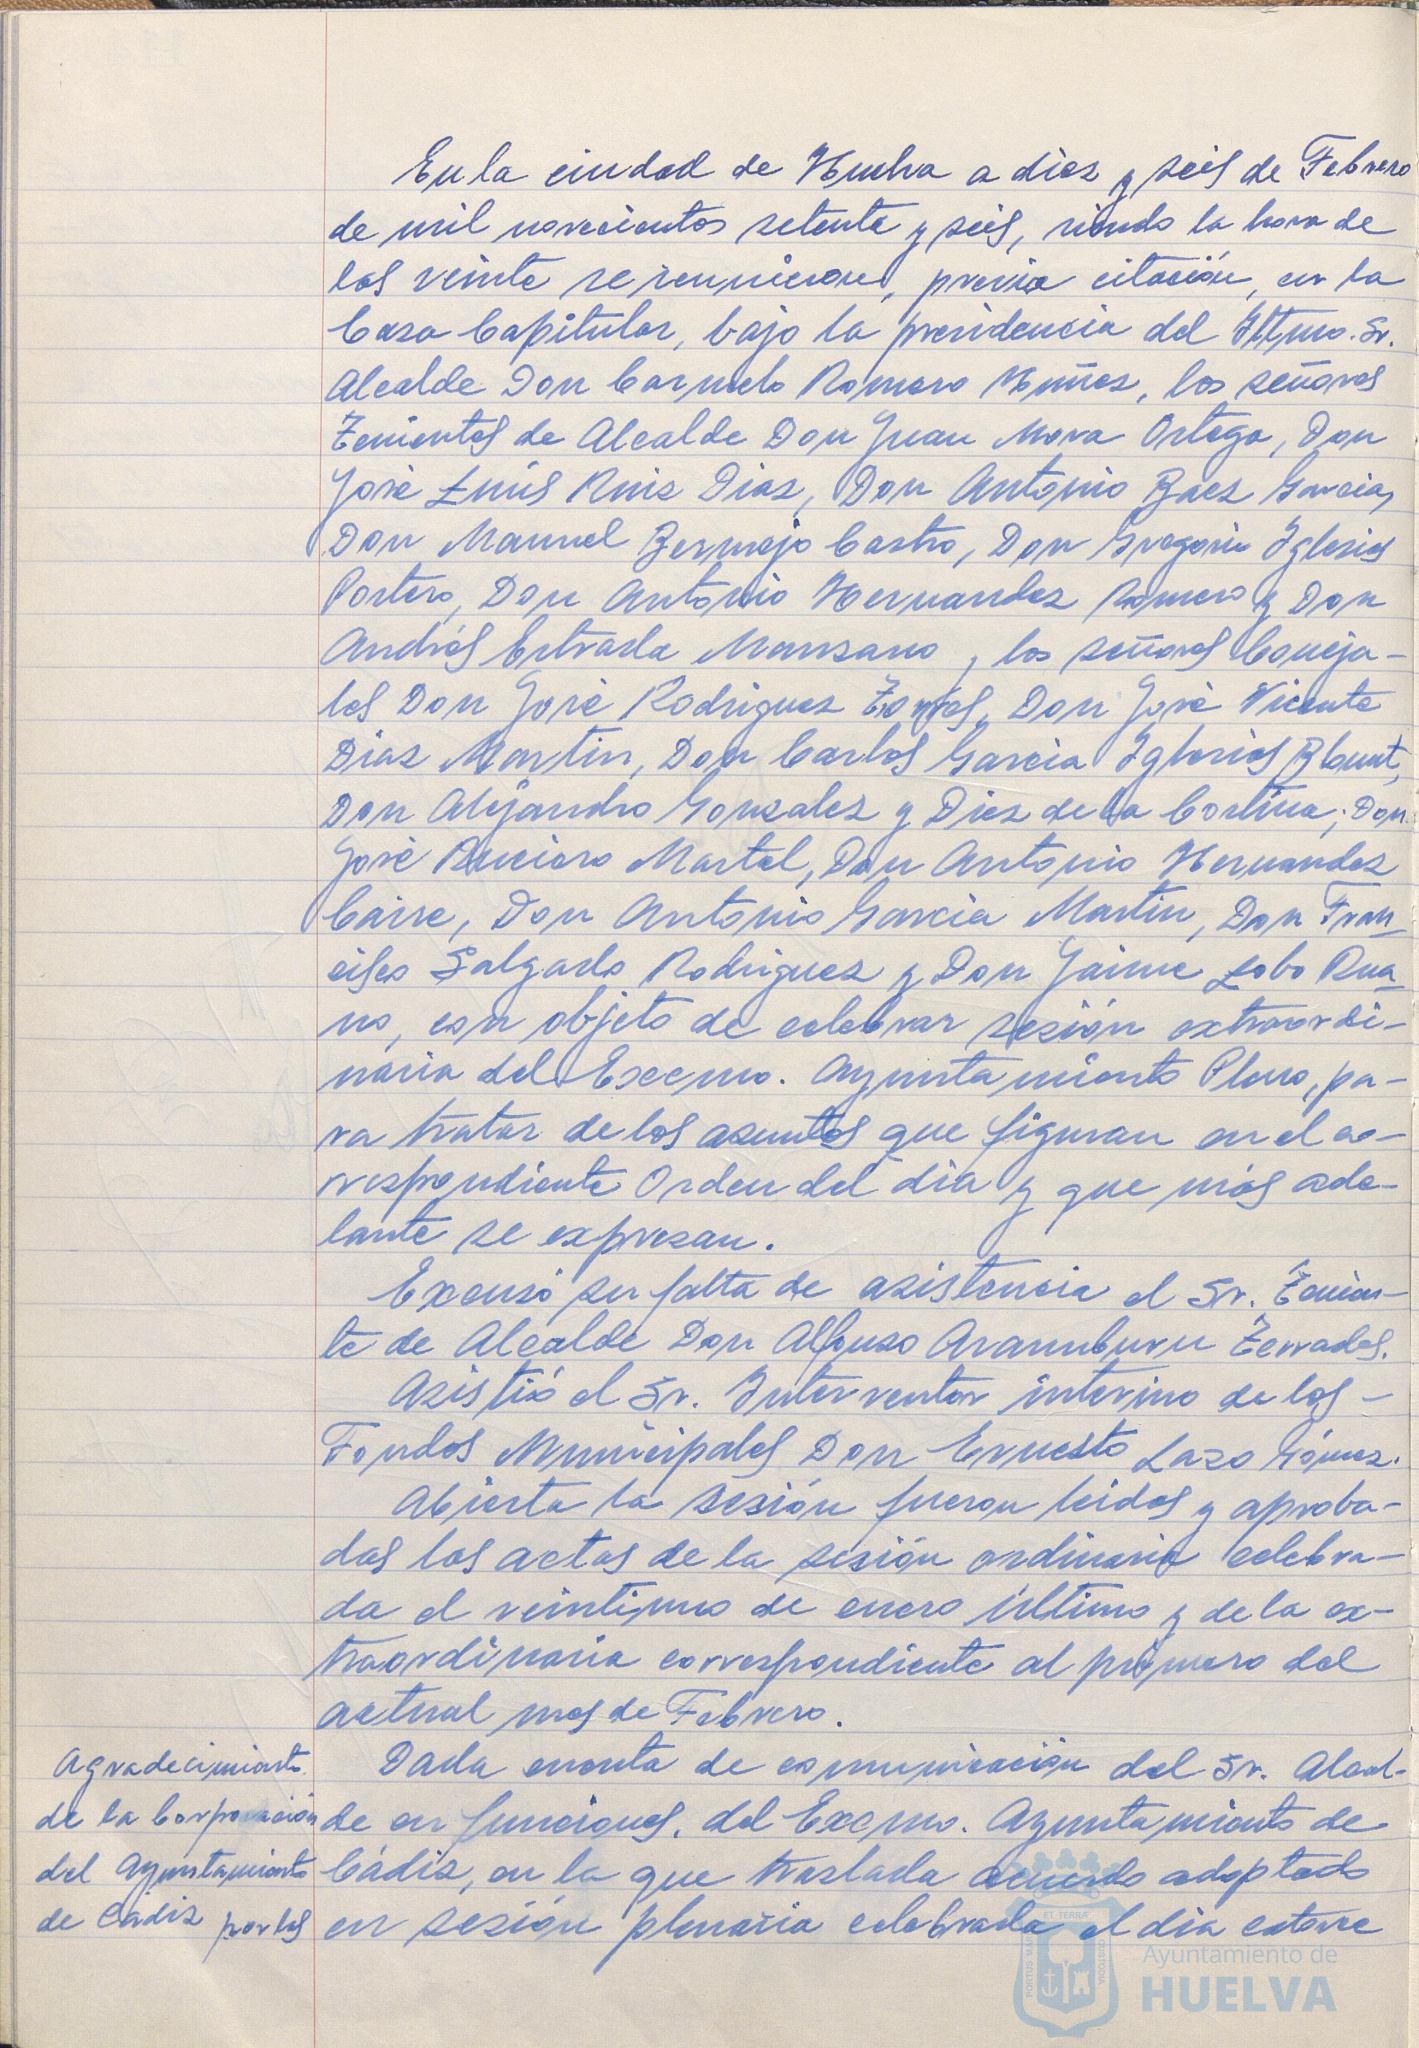 En la ciudad de Huelva a diez y seis de Febrero
de mil novecientos setenta y seis, siendo la hora de
las veinte se reunieron, previa citación, en la
Casa Capitular, bajo la presidencia del Iltmo. Sr.
Alcalde Don Carmelo Romero Núñez, los señores
Tenientes de Alcalde Don Juan Mora Ortega, Don
José Luís Ruiz Diaz, Don Antonio Baez Garcia,
Don Manuel Bermejo Castro, Don Gregorio Iglesias
Portero, Don Antonio Hernandez Romero y Don
Andrés Estrada Manzano, los señores Conceja-
les Don José Rodriguez Torres, Don José Vicente
Diaz Martin, Don Carlos Garcia Iglesias Blount,
Don Alejandro Gonzalez y Diez de la Cortina; Don
José Ruciero Martel, Don Antonio Hernandez
Caire, Don Antonio Garcia Martin, Don Fran-
cisco Salgado Rodriguez y Don Jaime Lobo Rua-
no, con objeto de celebrar sesión extraordi-
naria del Excmo. Ayuntamiento Pleno, pa-
ra tratar de los asuntos que figuran en el co-
rrespondiente Orden del día y que más ade-
lante se expresan.
Excusó su falta de asistencia el Sr. Tenien-
te de Alcalde Don Alfonso Aramburu Terrades.
Asistió el Sr. Interventor interino de los
Fondos Municipales Don Ernesto Lazo Gómez.
Abierta la sesión fueron leidas y aproba-
das las actas de la sesión ordinaria celebra-
da el veintiuno de enero último y de la ex-
traordinaria correspondiente al primero del
actual mes de Febrero.
Agradecimiento
de la Corporación
del Ayuntamiento
de Cádiz por los
Dada cuenta de comunicación del Sr. Alcal-
de en funciones, del Excmo. Ayuntamiento de
Cádiz, en la que traslada acuerdo adoptado
en sesión plenaria celebrada el dia catorce
PORTUS MARIS ET TERRAE CUSTODIA
Ayuntamiento de
HUELVA